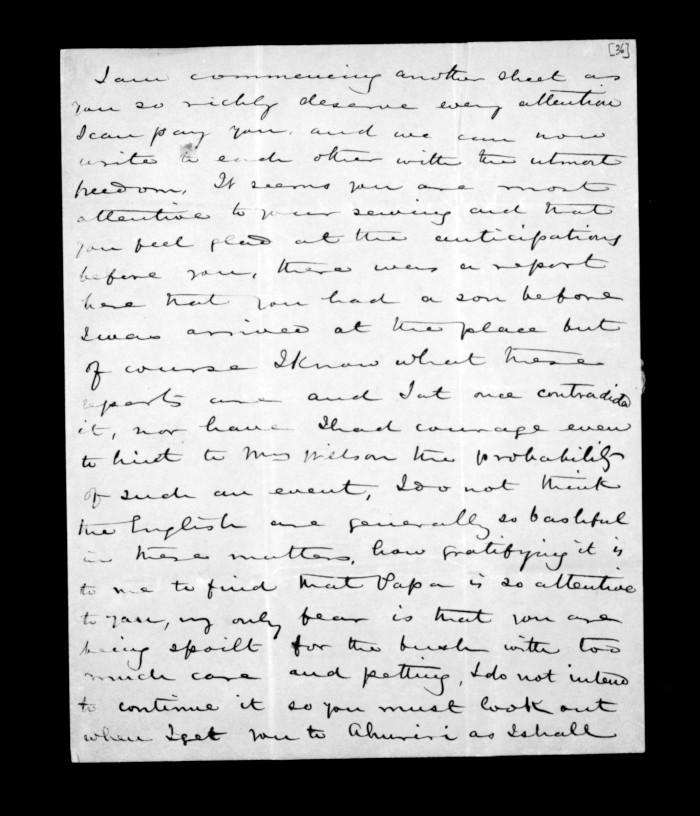 [36]
I am commencing another sheet as
you so richly deserve every attention
I can pay you. and we can now
write to each other with the utmost
freedom. It seems you are most
attentive to your sewing and that
you feel glad at the anticipations
before you, there was a report
here that you had a son before
I was arrived at the place but
of course I know what these
reports are and I at once contradicted
it, nor have I had courage even
to hint to Mrs Wilson the probability
of such an event, I do not think
the English are generally so bashful
in these matters, how gratifying it is
to me to find that Papa is so attentive
to you, my only fear is that you are
being spoilt for the bush with too
much care and petting, I do not intend
to continue it so you must look out
when I get you to Ahuriri as I shall